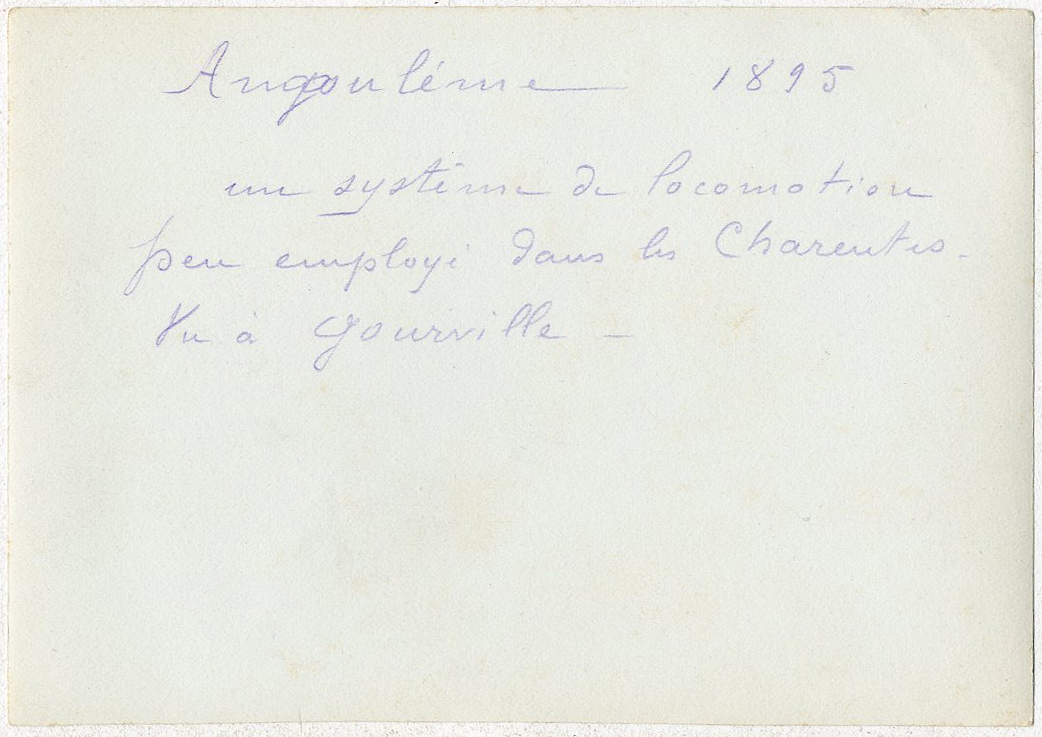 Angoulême 1895
un système de locomotion
peu employé dans les Charentes.
Vu à Gourville –